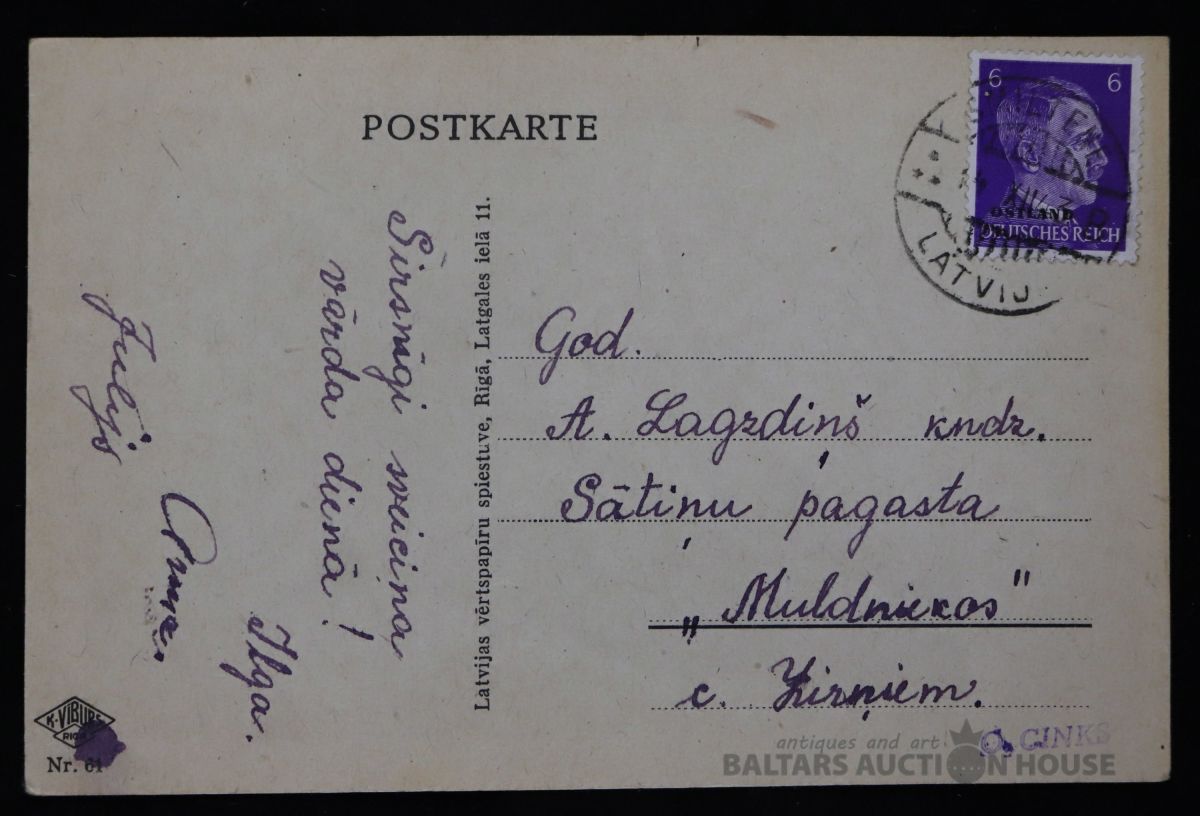 POSTKARTE
6 6
OSTLAND
DEUTSCHES REICH
LATVIJ
Sirsnīgi sveicina
vārda dienā!
Ilga.
Julijs
Latvijas vērtspapīru spiestuve, Rīgā, Latgales ielā 11.
God.
A. Lagzdiņš kndz.
Sātiņu pagasta
„Muldniekos"
c. Zirņiem.
K·VIBURS
RIGA
Nr. 61
O. CINKS
antiques and art
BALTARS AUCTION HOUSE